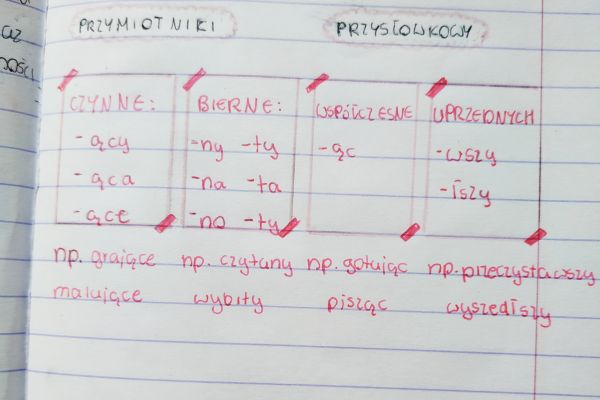 PRZYMIOTNIKI PRZYSŁOWKOWY
CZYNNE: BIERNE: WSPÓŁCZESNE UPRZEDNYCH
-ący -ny -ty -ąc -wszy
-ąca -na -ta -łszy
-ące -no -ty
np. grające np. czytany np. gotując np. przeczystawszy
malujące wybity pisząc wyszedłszy